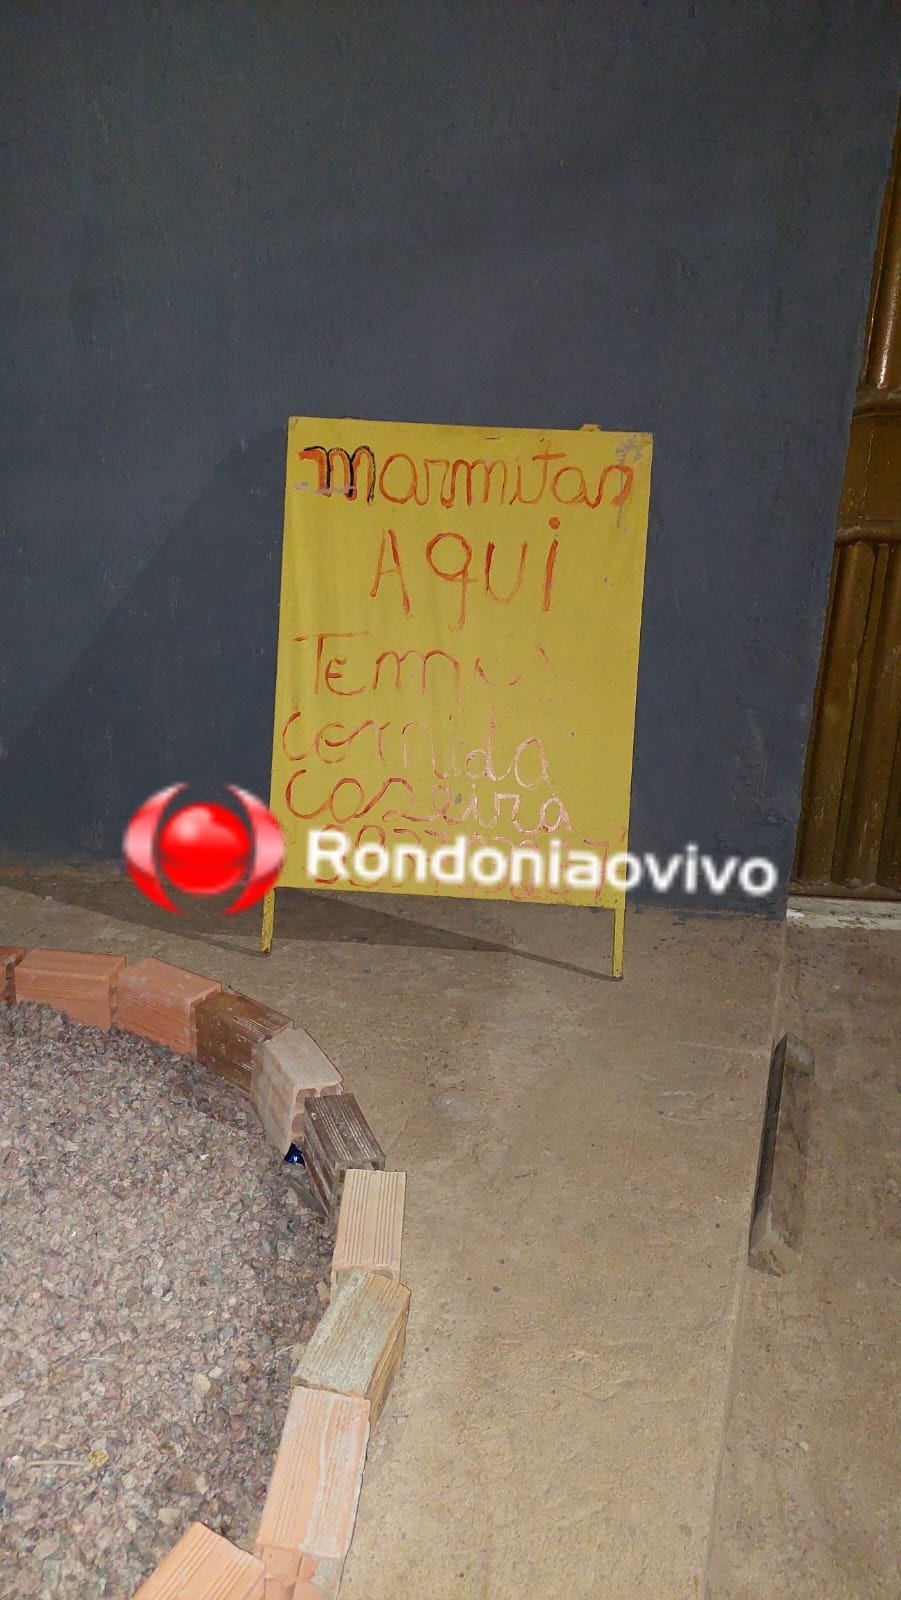 marmitas
AQUi
Temos
comida
caseira
Rondoniaovivo